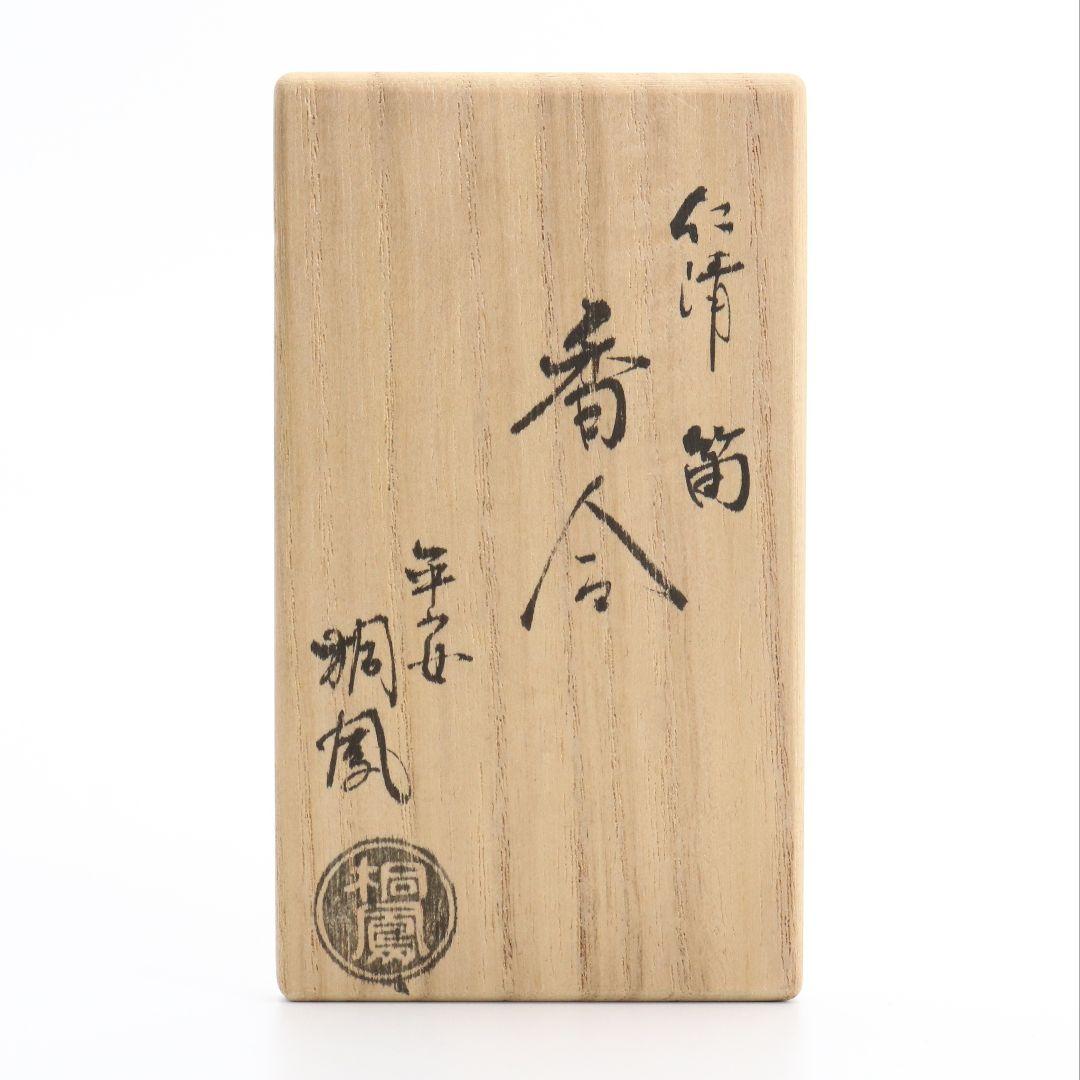 仁清 笛
香合
平安
桐鳳
桐鳳